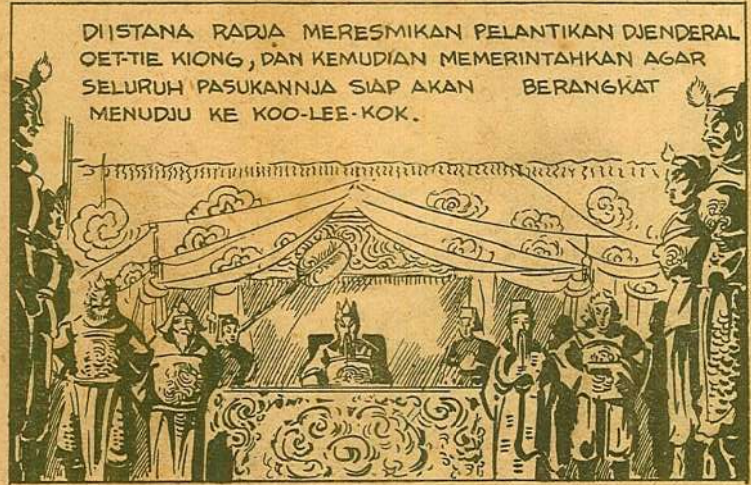 DIISTANA RADJA MERESMIKAN PELANTIKAN DJENDERAL
OET-TIE KIONG, DAN KEMUDIAN MEMERINTAHKAN AGAR
SELURUH PASUKANNJA SIAP AKAN BERANGKAT
MENUDJU KE KOO-LEE-KOK.